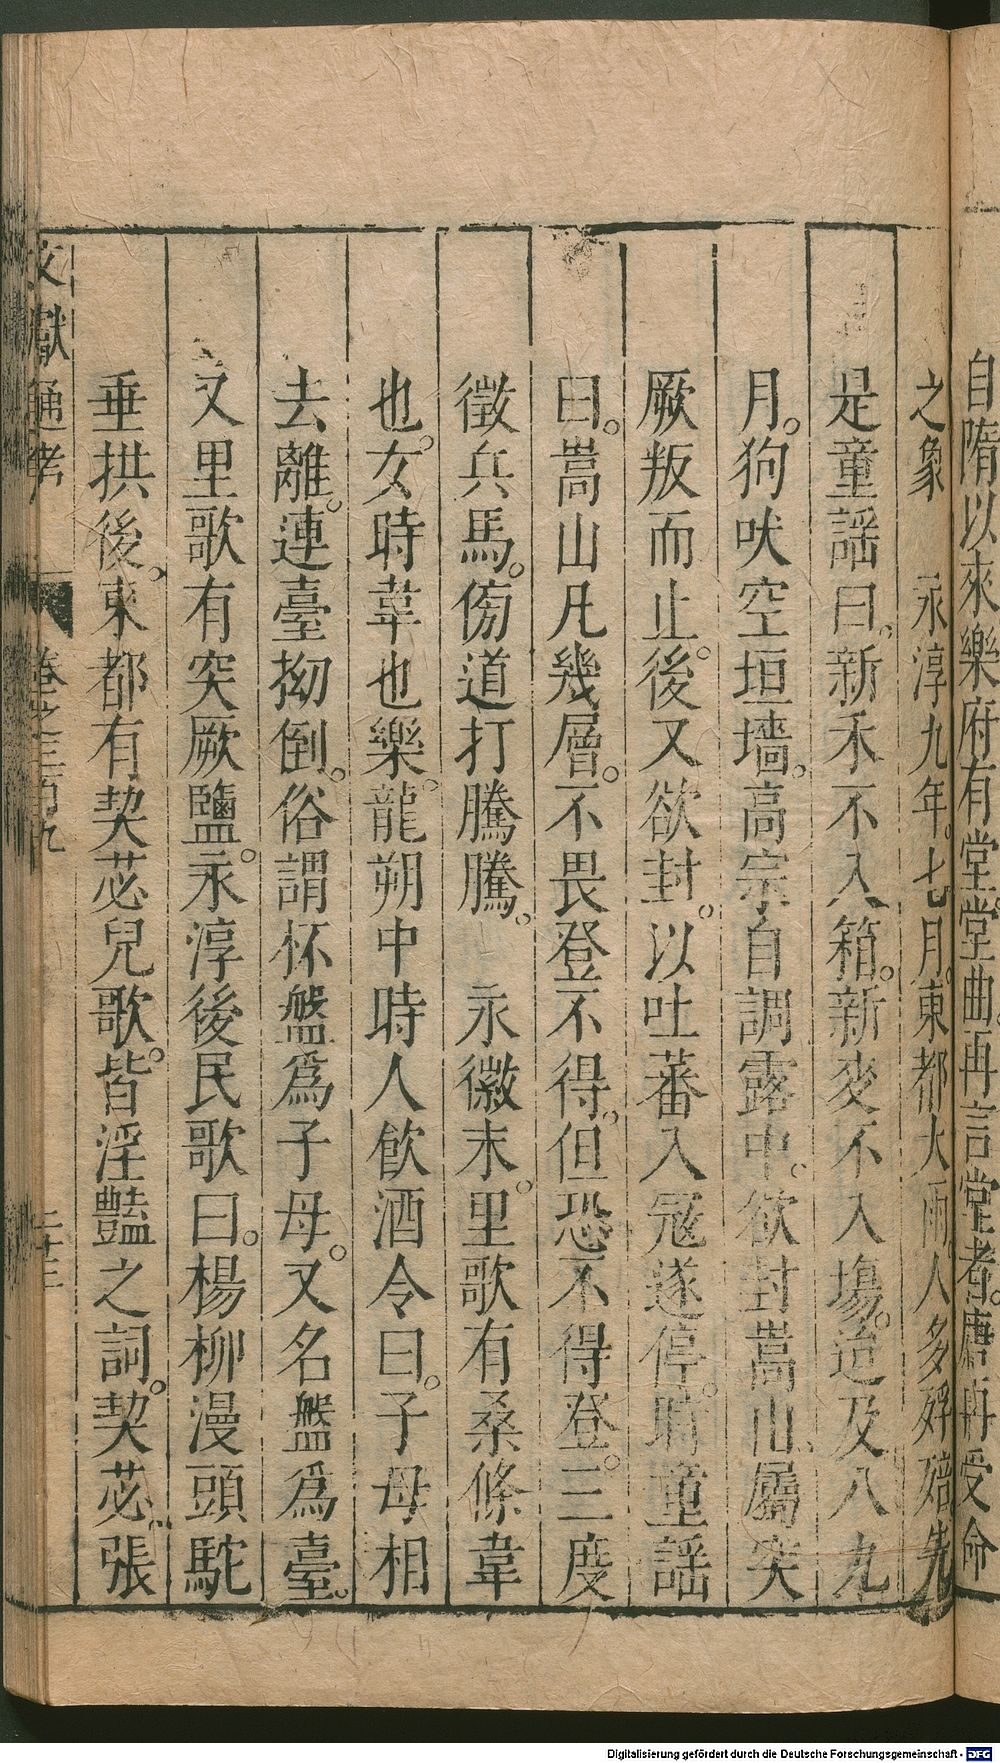 自隋以來樂府有堂堂曲再言堂者唐再受命
之象　永淳九年七月東都大雨人多殍殕先
是童謡曰新禾不入箱新麥不入塲迨及八九
月狗吠空垣墻高宗自調露中欲封嵩山屬突
厥叛而止後又欲封以吐蕃入冦遂停時童謡
曰嵩山凡幾層不畏登不得但恐不得登三度
徵兵馬傍道打騰騰　永徽末里歌有桑條韋
也女時韋也樂龍朔中時人飲酒令曰子母相
去離連臺拗倒俗謂杯盤爲子母又名盤爲臺
又里歌有突厥鹽永淳後民歌曰楊柳漫頭駝
垂拱後東都有契苾兒歌皆淫豔之詞契苾張
文獻通考　卷之三百九　二十三
Digitalisierung gefördert durch die Deutsche Forschungsgemeinschaft - DFG